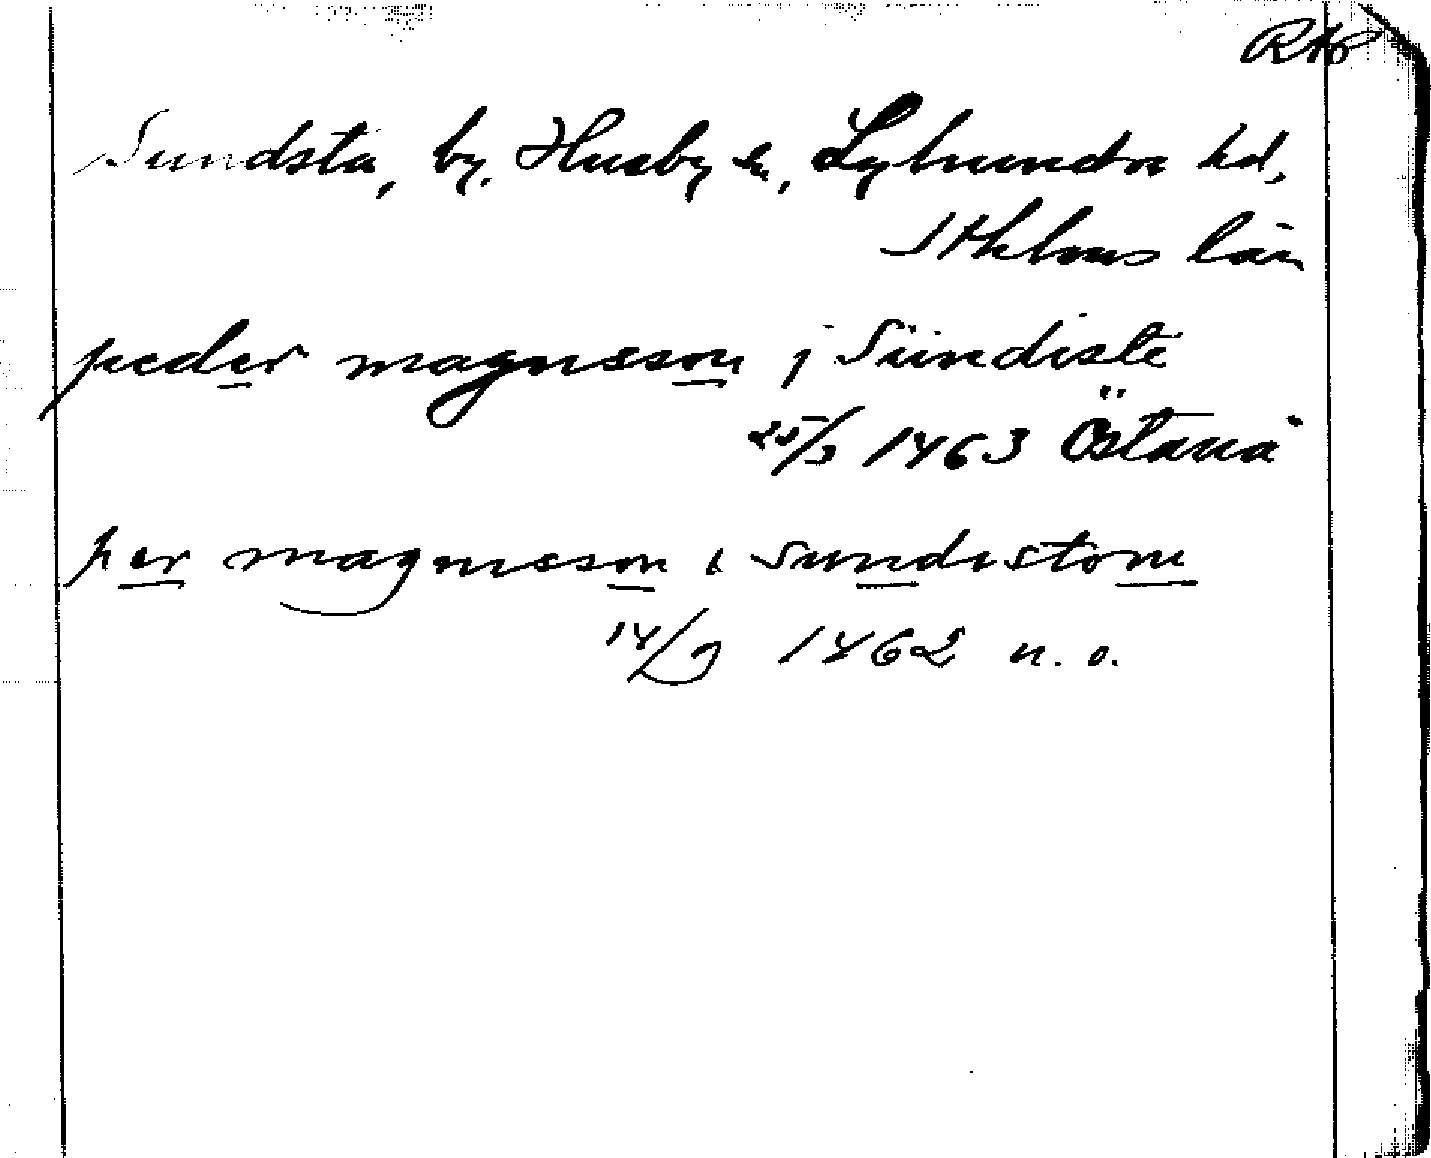 RAp
Sundsta, by, Husby sn, Lyhundra hd,
Sthlms län
peder magnusson j Sündiste
25/3 1463 Östanå
per magnusson i sundistom
14/9 1462 n. o.